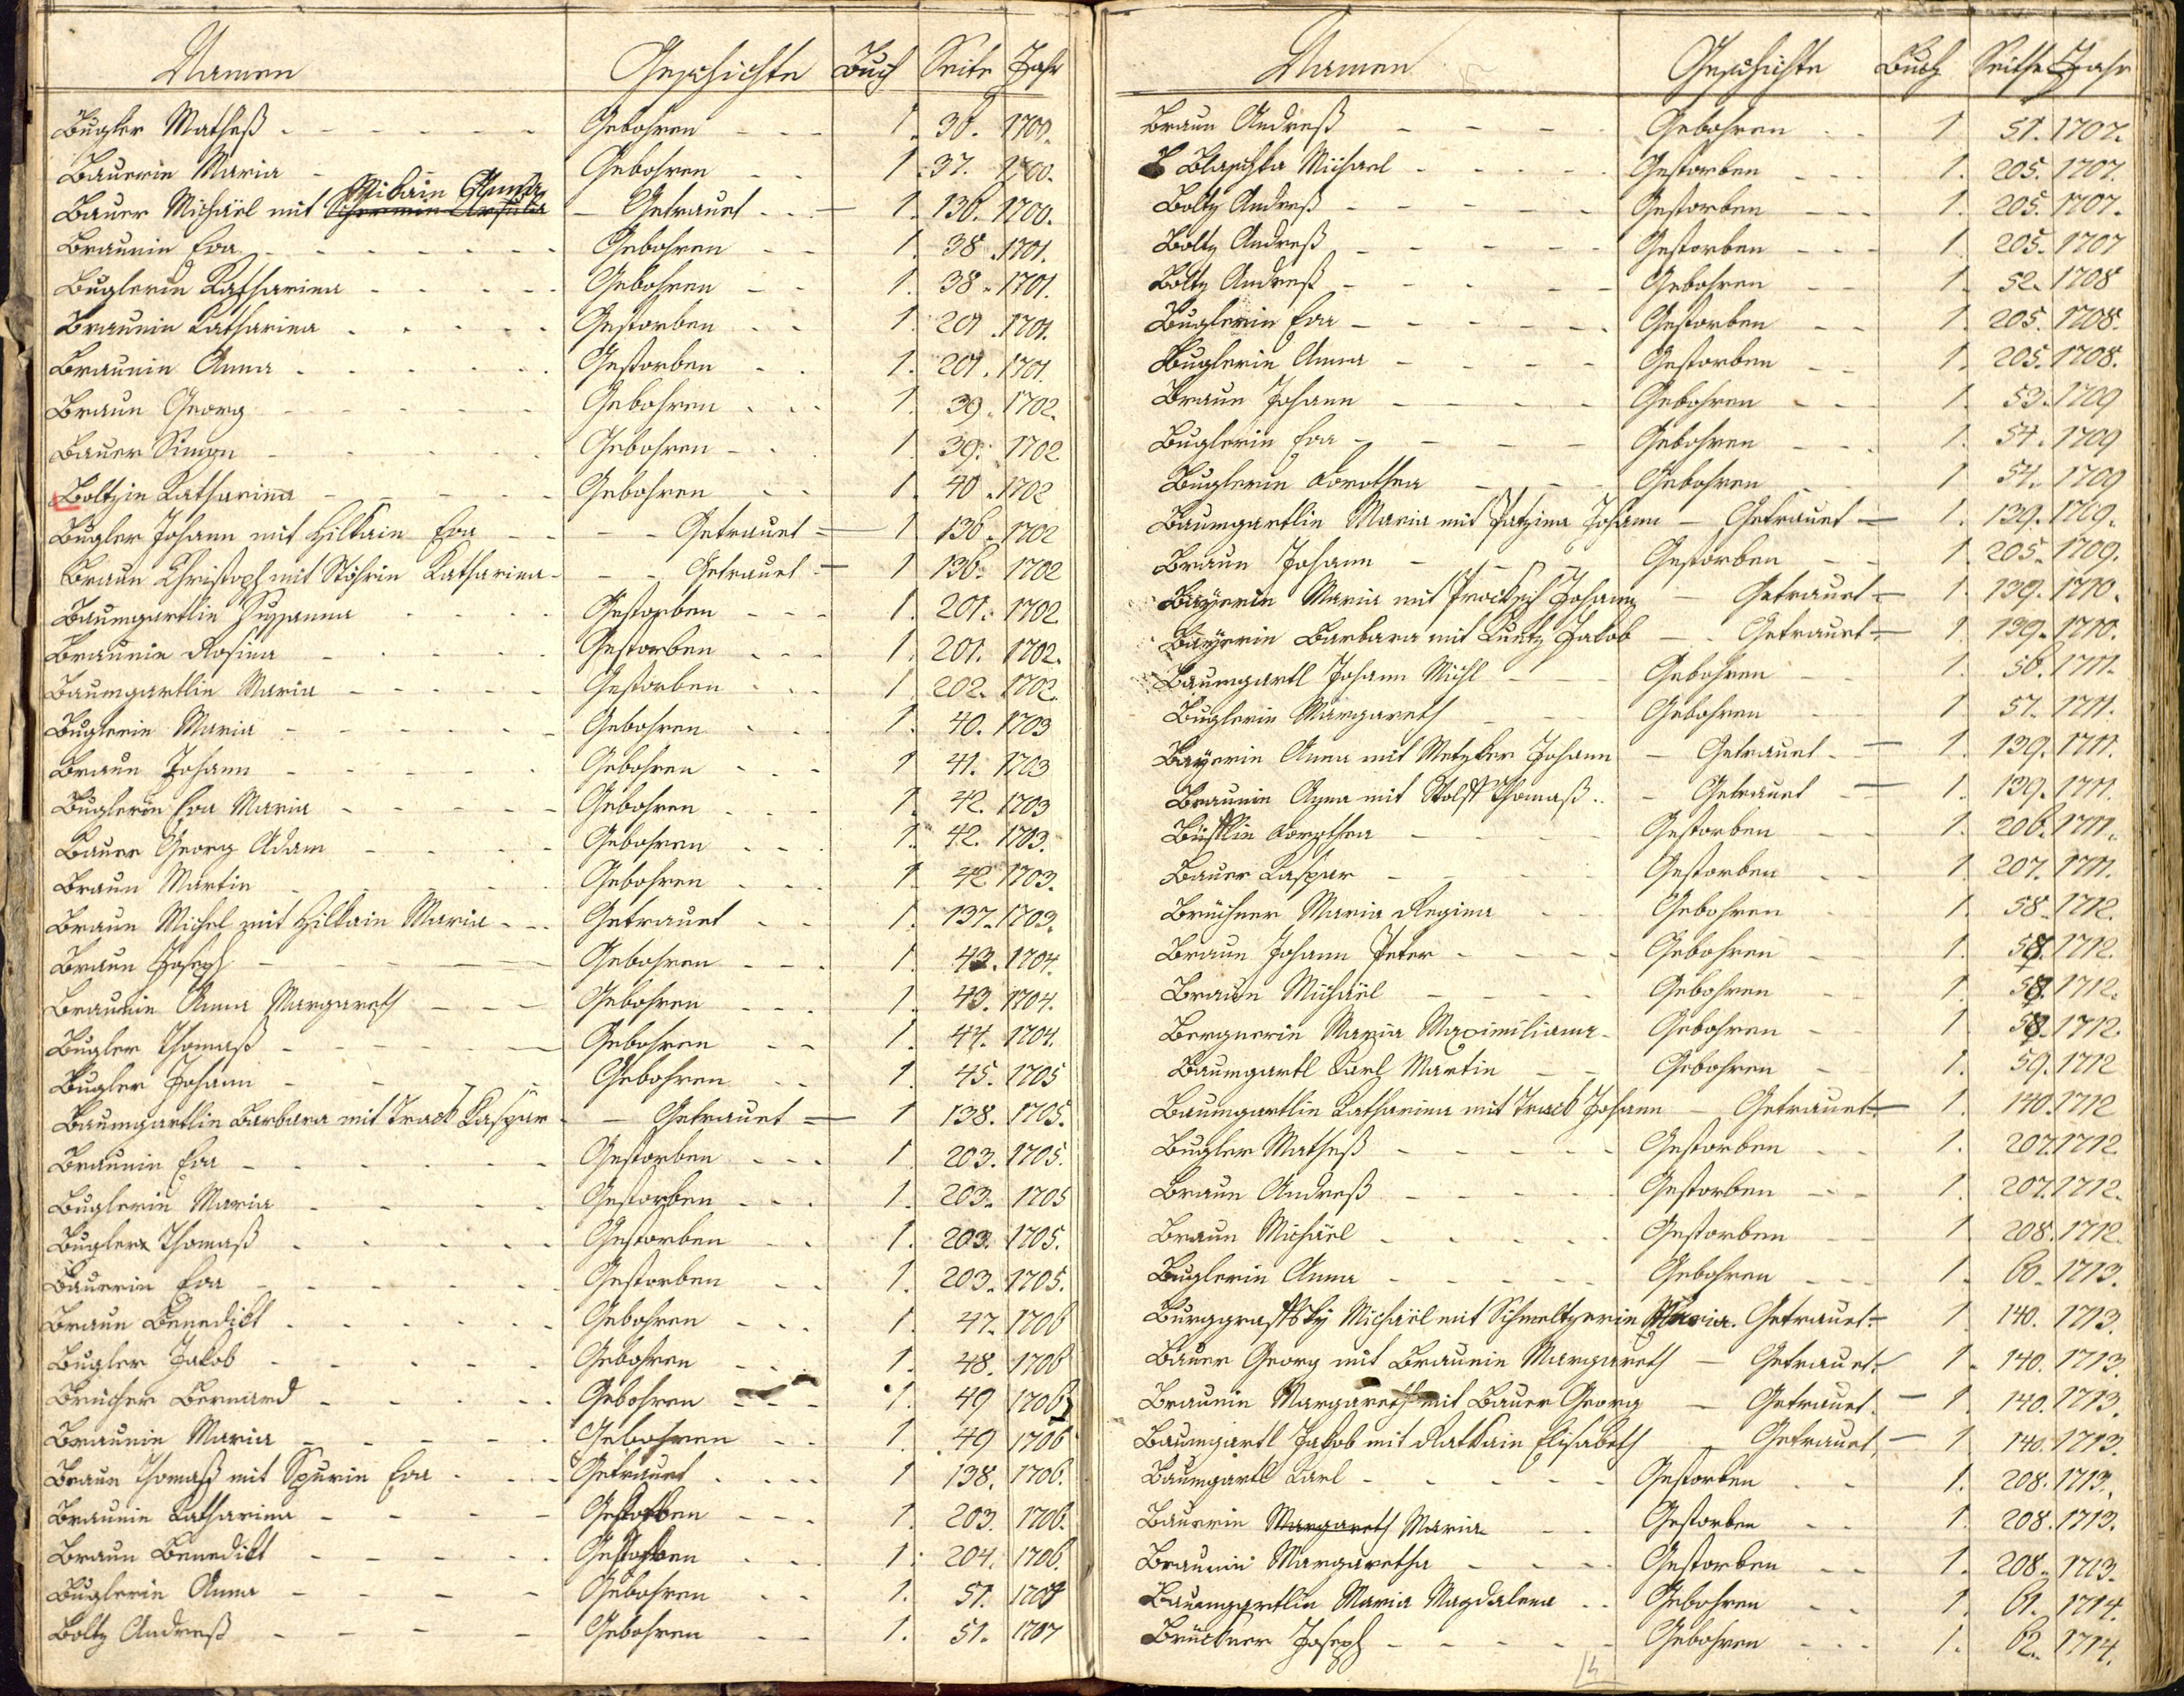 Namen Geschichte Buch Seite Jahr
Bugler Matheß Gebohren 1. 36. 1700.
Bauerin Maria Gebohren 1. 37. 1700.
Anna
Bauer Michäel mit Ursula Getrauet 1. 136. 1700.
Braunin Eva Gebohren 1. 38. 1701.
Buglerin Katharina Gebohren 1. 38. 1701.
Braunin Katharina Gestorben 1. 201. 1701.
Braunin Anna Gestorben 1. 201. 1701.
Braun Georg Gebohren 1. 39. 1702.
Bauer Simon Gebohren 1. 39. 1702
Boltzin Katharina Gebohren 1. 40. 1702
Bugler Johann mit Hilkain Eva Getrauet 1 136. 1702
Braun Christoph mit Röhrin Katharina Getrauet 1 136. 1702
Baumgartlin Susanna Gestorben 1. 201. 1702
Braunin Rosina Gestorben 1. 201. 1702.
Baumgartlin Maria Gestorben 1. 202. 1702.
Buglerin Maria Gebohren 1. 40. 1703
Braun Johann Gebohren 1 41. 1703
Buglerin Eva Maria Gebohren 1. 42. 1703
Bauer Georg Adam Gebohren 1. 42. 1703.
Braun Martin Gebohren 1. 42 1703.
Braun Michel mit Hilkain Maria Getrauet 1. 137. 1703.
Braun Joseph Gebohren 1. 43. 1704.
Braunin Anna Margareth Gebohren 1. 43. 1704.
Bugler Thomaß Gebohren 1. 44. 1704.
Bugler Johann Gebohren 1. 45. 1705
Baumgartlin Barbara mit Kaspar Getrauet 1 138. 1705.
Braunin Eva Gestorben 1. 203. 1705.
Buglerin Maria Gestorben 1. 203. 1705
Bugler Thomaß Gestorben 1. 203. 1705.
Bauerin Eva Gestorben 1. 203. 1705.
Braun Benedikt Gebohren 1. 47. 1706
Bugler Jakob Gebohren 1. 48. 1706
Brucher Bernard Gebohren 1. 49 1706
Braunin Maria Gebohren 1. 49 1706
Braun Thomaß mit Spurin Eva Getrauet 1 138. 1706.
Braunin Katharina Gestorben 1. 203. 1706.
Braun Benedikt Gestorben 1. 204. 1706.
Buglerin Anna Gebohren 1. 51. 1707
Boltz Andreß Gebohren 1. 51. 1707
Namen Geschichte Buch Seithe Jahr
Braun Andreß Gebohren 1 51. 1707.
Blaschka Michael Gestorben 1. 205. 1707.
Boltz Andreß Gestorben 1. 205. 1707.
Boltz Andreß Gestorben 1. 205. 1707
Boltz Andreß Gebohren 1. 52. 1708
Buglerin Eva Gestorben 1. 205. 1708.
Buglerin Anna Gestorben 1. 205. 1708.
Braun Johann Gebohren 1. 53. 1709
Buglerin Eva Gebohren 1. 54. 1709
Buglerin Dorothea Gebohren 1 54. 1709
Baumgartlin Maria mit Johann Getrauet 1. 139. 1709.
Braun Johann Gestorben 1. 205. 1709.
Bayerin Maria mit Johann Getrauet 1. 139. 1710.
Bayerin Barbara mit Kuntz Jakob Getrauet 1 139. 1710.
Baumgartl Johann Michl Gebohren 1. 56. 1711.
Buglerin Margareth Gebohren 1 57. 1711.
Bayerin Anna mit Metzker Johann Getrauet 1 139. 1711.
Braunin Anna mit Thomaß Getrauet 1. 139. 1711.
Dorothea Gestorben 1. 206. 1711.
Bauer Kaspar Gestorben 1. 207. 1711.
Brüchner Maria Regina Gebohren 1. 58. 1712.
Braun Johann Peter Gebohren 1. 58. 1712.
Braun Michäel Gebohren 1 58. 1712.
Bergnerin Maria Maximiliana Gebohren 1 58. 1712.
Baumgartl Karl Martin Gebohren 1. 59. 1712
Baumgartlin Katharina mit Johann Getrauet 1. 140. 1712
Bugler Matheß Gestorben 1. 207. 1712
Braun Andreß Gestorben 1. 207. 1712.
Braun Michäel Gestorben 1 208. 1712.
Buglerin Anna Gebohren 1. 60. 1713.
Michäel mit Schmeltzerin Maria. Getrauet 1 140. 1713.
Bauer Georg mit Braunin Margareth Getrauet 1. 140. 1713.
Braunin Margareth mit Bauer Georg Getrauet 1 140. 1713.
Baumgartl Jakob mit Elisabeth Getrauet 1 140. 1713.
Baumgartl Karl Gestorben 1. 208. 1713.
Bauerin Margareth Maria Gestorben 1. 208. 1713.
Braunin Margaretha Gestorben 1. 208. 1713.
Baumgartlin Maria Magdalena Gebohren 1. 61. 1714.
Brückner Joseph Gebohren 1. 62. 1714.